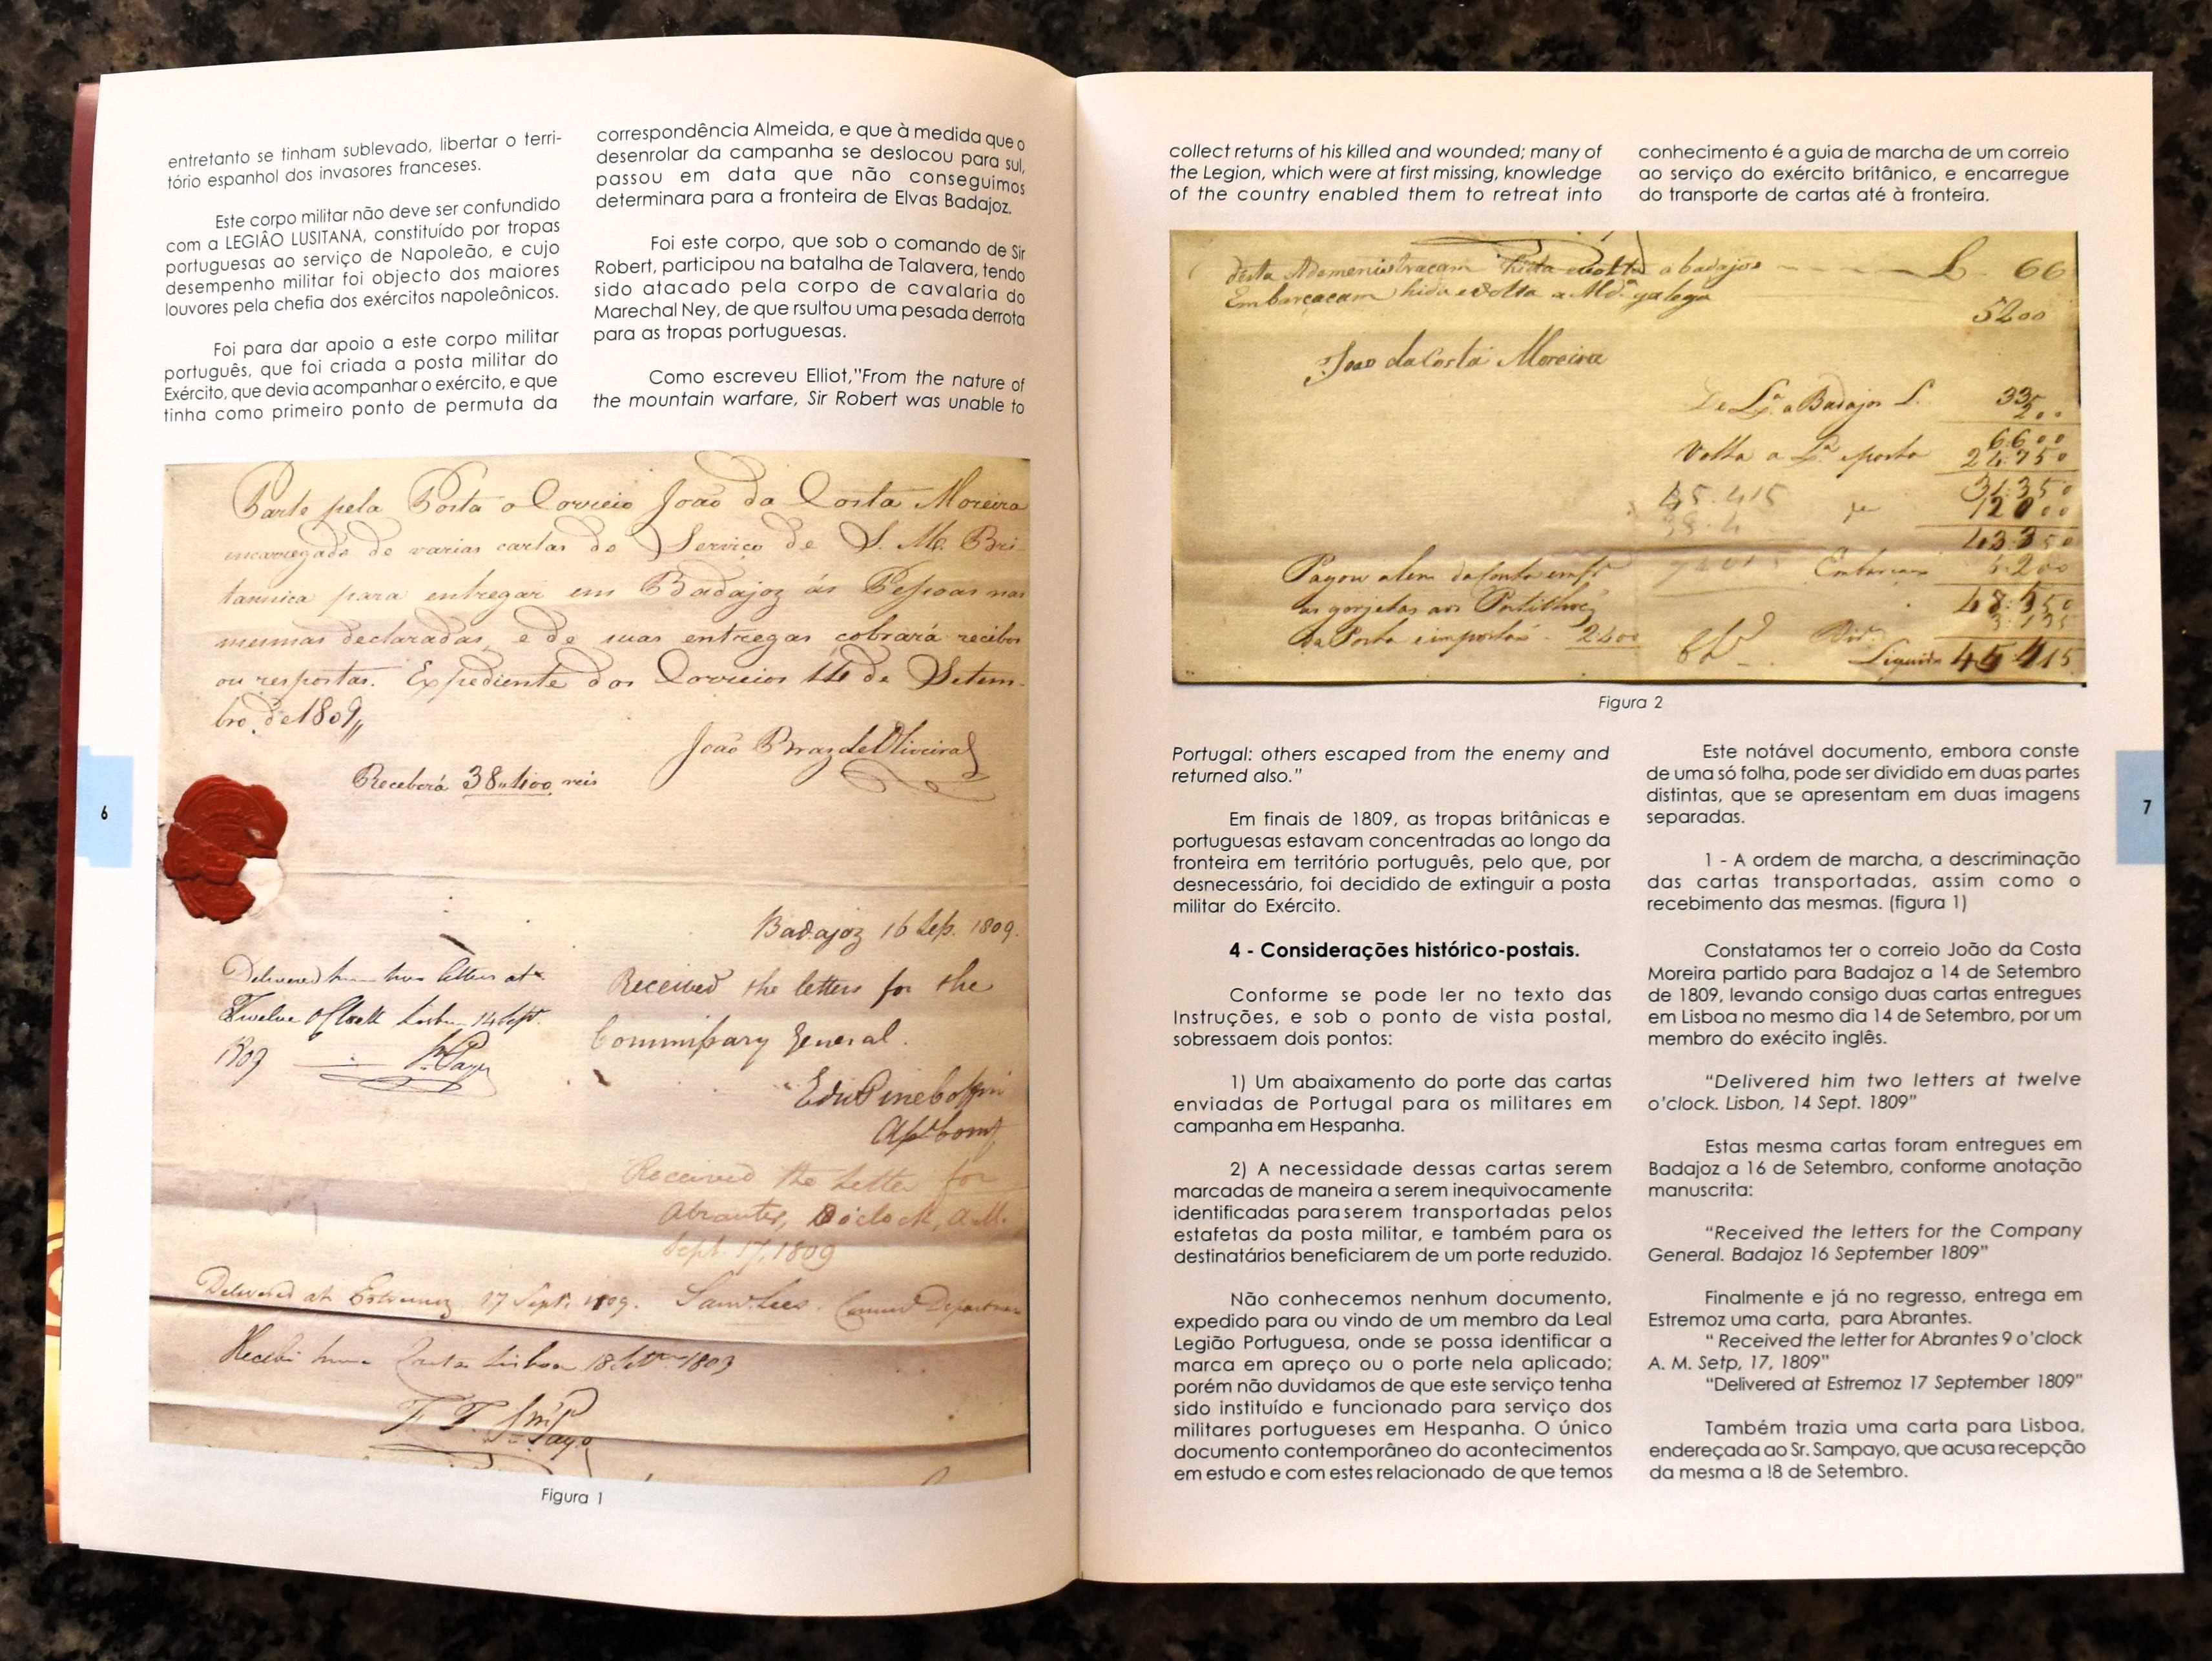 entretanto se tinham sublevado, libertar o terri-
tório espanhol dos invasores franceses.
Este corpo militar não deve ser confundido
com a LEGIÂO LUSITANA, constituído por tropas
portuguesas ao serviço de Napoleão, e cujo
desempenho militar foi objecto dos maiores
louvores pela chefia dos exércitos napoleônicos.
Foi para dar apoio a este corpo militar
português, que foi criada a posta militar do
Exército, que devia acompanhar o exército, e que
tinha como primeiro ponto de permuta da
correspondência Almeida, e que à medida que o
desenrolar da campanha se deslocou para sul,
passou em data que não conseguimos
determinara para a fronteira de Elvas Badajoz.
Foi este corpo, que sob o comando de Sir
Robert, participou na batalha de Talavera, tendo
sido atacado pela corpo de cavalaria do
Marechal Ney, de que rsultou uma pesada derrota
para as tropas portuguesas.
Como escreveu Elliot,"From the nature of
the mountain warfare, Sir Robert was unable to
Parte pela Posta o Correio João da Costa Moreira
encarregado de varias cartas do Serviço de S. M. Bri-
tannica para entregar em Badajoz ás Pessoas nas
mesmas declaradas, e de suas entregas cobrará recibos
ou respostas. Expediente dos Correios 14 de Setem-
bro de 1809
João Braz de Oliveira
Receberá 38"400 reis
Badajoz 16 Sep. 1809.
Received the letters for the
Commissary General.
Delivered him two letters at
Twelve O'Clock Lisbon 14 Sept.
1809
Received the letter for
Abrantes, o'clock, A.M.
Sept. 17, 1809
Delivered at Estremoz 17 Sept. 1809.
Recebi huma Carta Lisboa 18 Set. 1809
Figura 1
6
collect returns of his killed and wounded; many of
the Legion, which were at first missing, knowledge
of the country enabled them to retreat into
conhecimento é a guia de marcha de um correio
ao serviço do exército britânico, e encarregue
do transporte de cartas até à fronteira.
desta Ademenistracam hida e volta a badajos L. 66
Embarcacam hida e volta a Md.ª galega
5200
Joao da Costa Moreira
De Lx.ª a Badajos L. 33
200
6600
Volta a Lx.ª 24.750
31.350
45.415 12000
43350
Pagou alem 5.200
as gorjetas aos
da Posta 2400
Liquido 45.415
Figura 2
Portugal: others escaped from the enemy and
returned also."
Em finais de 1809, as tropas britânicas e
portuguesas estavam concentradas ao longo da
fronteira em território português, pelo que, por
desnecessário, foi decidido de extinguir a posta
militar do Exército.
4 - Considerações histórico-postais.
Conforme se pode ler no texto das
Instruções, e sob o ponto de vista postal,
sobressaem dois pontos:
1) Um abaixamento do porte das cartas
enviadas de Portugal para os militares em
campanha em Hespanha.
2) A necessidade dessas cartas serem
marcadas de maneira a serem inequivocamente
identificadas para serem transportadas pelos
estafetas da posta militar, e também para os
destinatários beneficiarem de um porte reduzido.
Não conhecemos nenhum documento,
expedido para ou vindo de um membro da Leal
Legião Portuguesa, onde se possa identificar a
marca em apreço ou o porte nela aplicado;
porém não duvidamos de que este serviço tenha
sido instituído e funcionado para serviço dos
militares portugueses em Hespanha. O único
documento contemporâneo do acontecimentos
em estudo e com estes relacionado de que temos
Este notável documento, embora conste
de uma só folha, pode ser dividido em duas partes
distintas, que se apresentam em duas imagens
separadas.
1 - A ordem de marcha, a descriminação
das cartas transportadas, assim como o
recebimento das mesmas. (figura 1)
Constatamos ter o correio João da Costa
Moreira partido para Badajoz a 14 de Setembro
de 1809, levando consigo duas cartas entregues
em Lisboa no mesmo dia 14 de Setembro, por um
membro do exécito inglês.
"Delivered him two letters at twelve
o'clock. Lisbon, 14 Sept. 1809"
Estas mesma cartas foram entregues em
Badajoz a 16 de Setembro, conforme anotação
manuscrita:
"Received the letters for the Company
General. Badajoz 16 September 1809"
Finalmente e já no regresso, entrega em
Estremoz uma carta, para Abrantes.
" Received the letter for Abrantes 9 o'clock
A. M. Setp, 17, 1809"
"Delivered at Estremoz 17 September 1809"
Também trazia uma carta para Lisboa,
endereçada ao Sr. Sampayo, que acusa recepção
da mesma a !8 de Setembro.
7